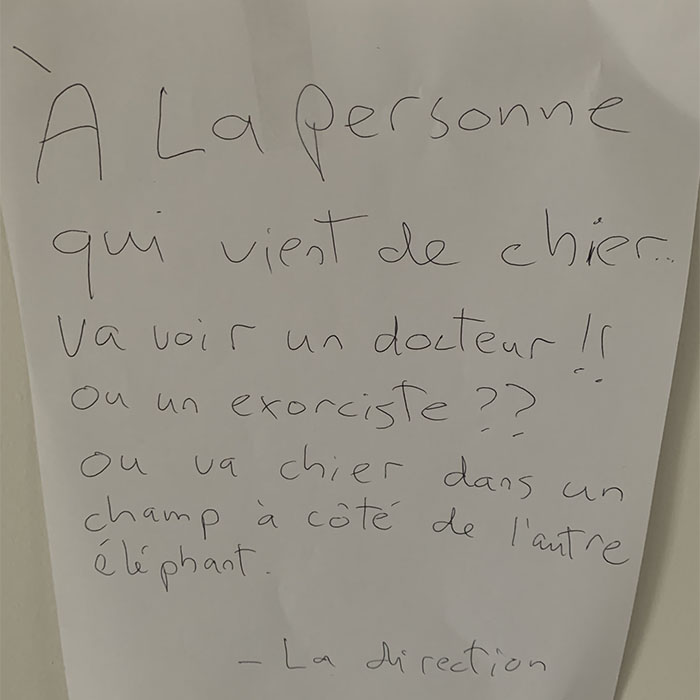 À La personne
qui vient de chier...
Va voir un docteur !!
ou un exorciste ??
ou va chier dans un
champ à côté de l'autre
éléphant.
- La direction